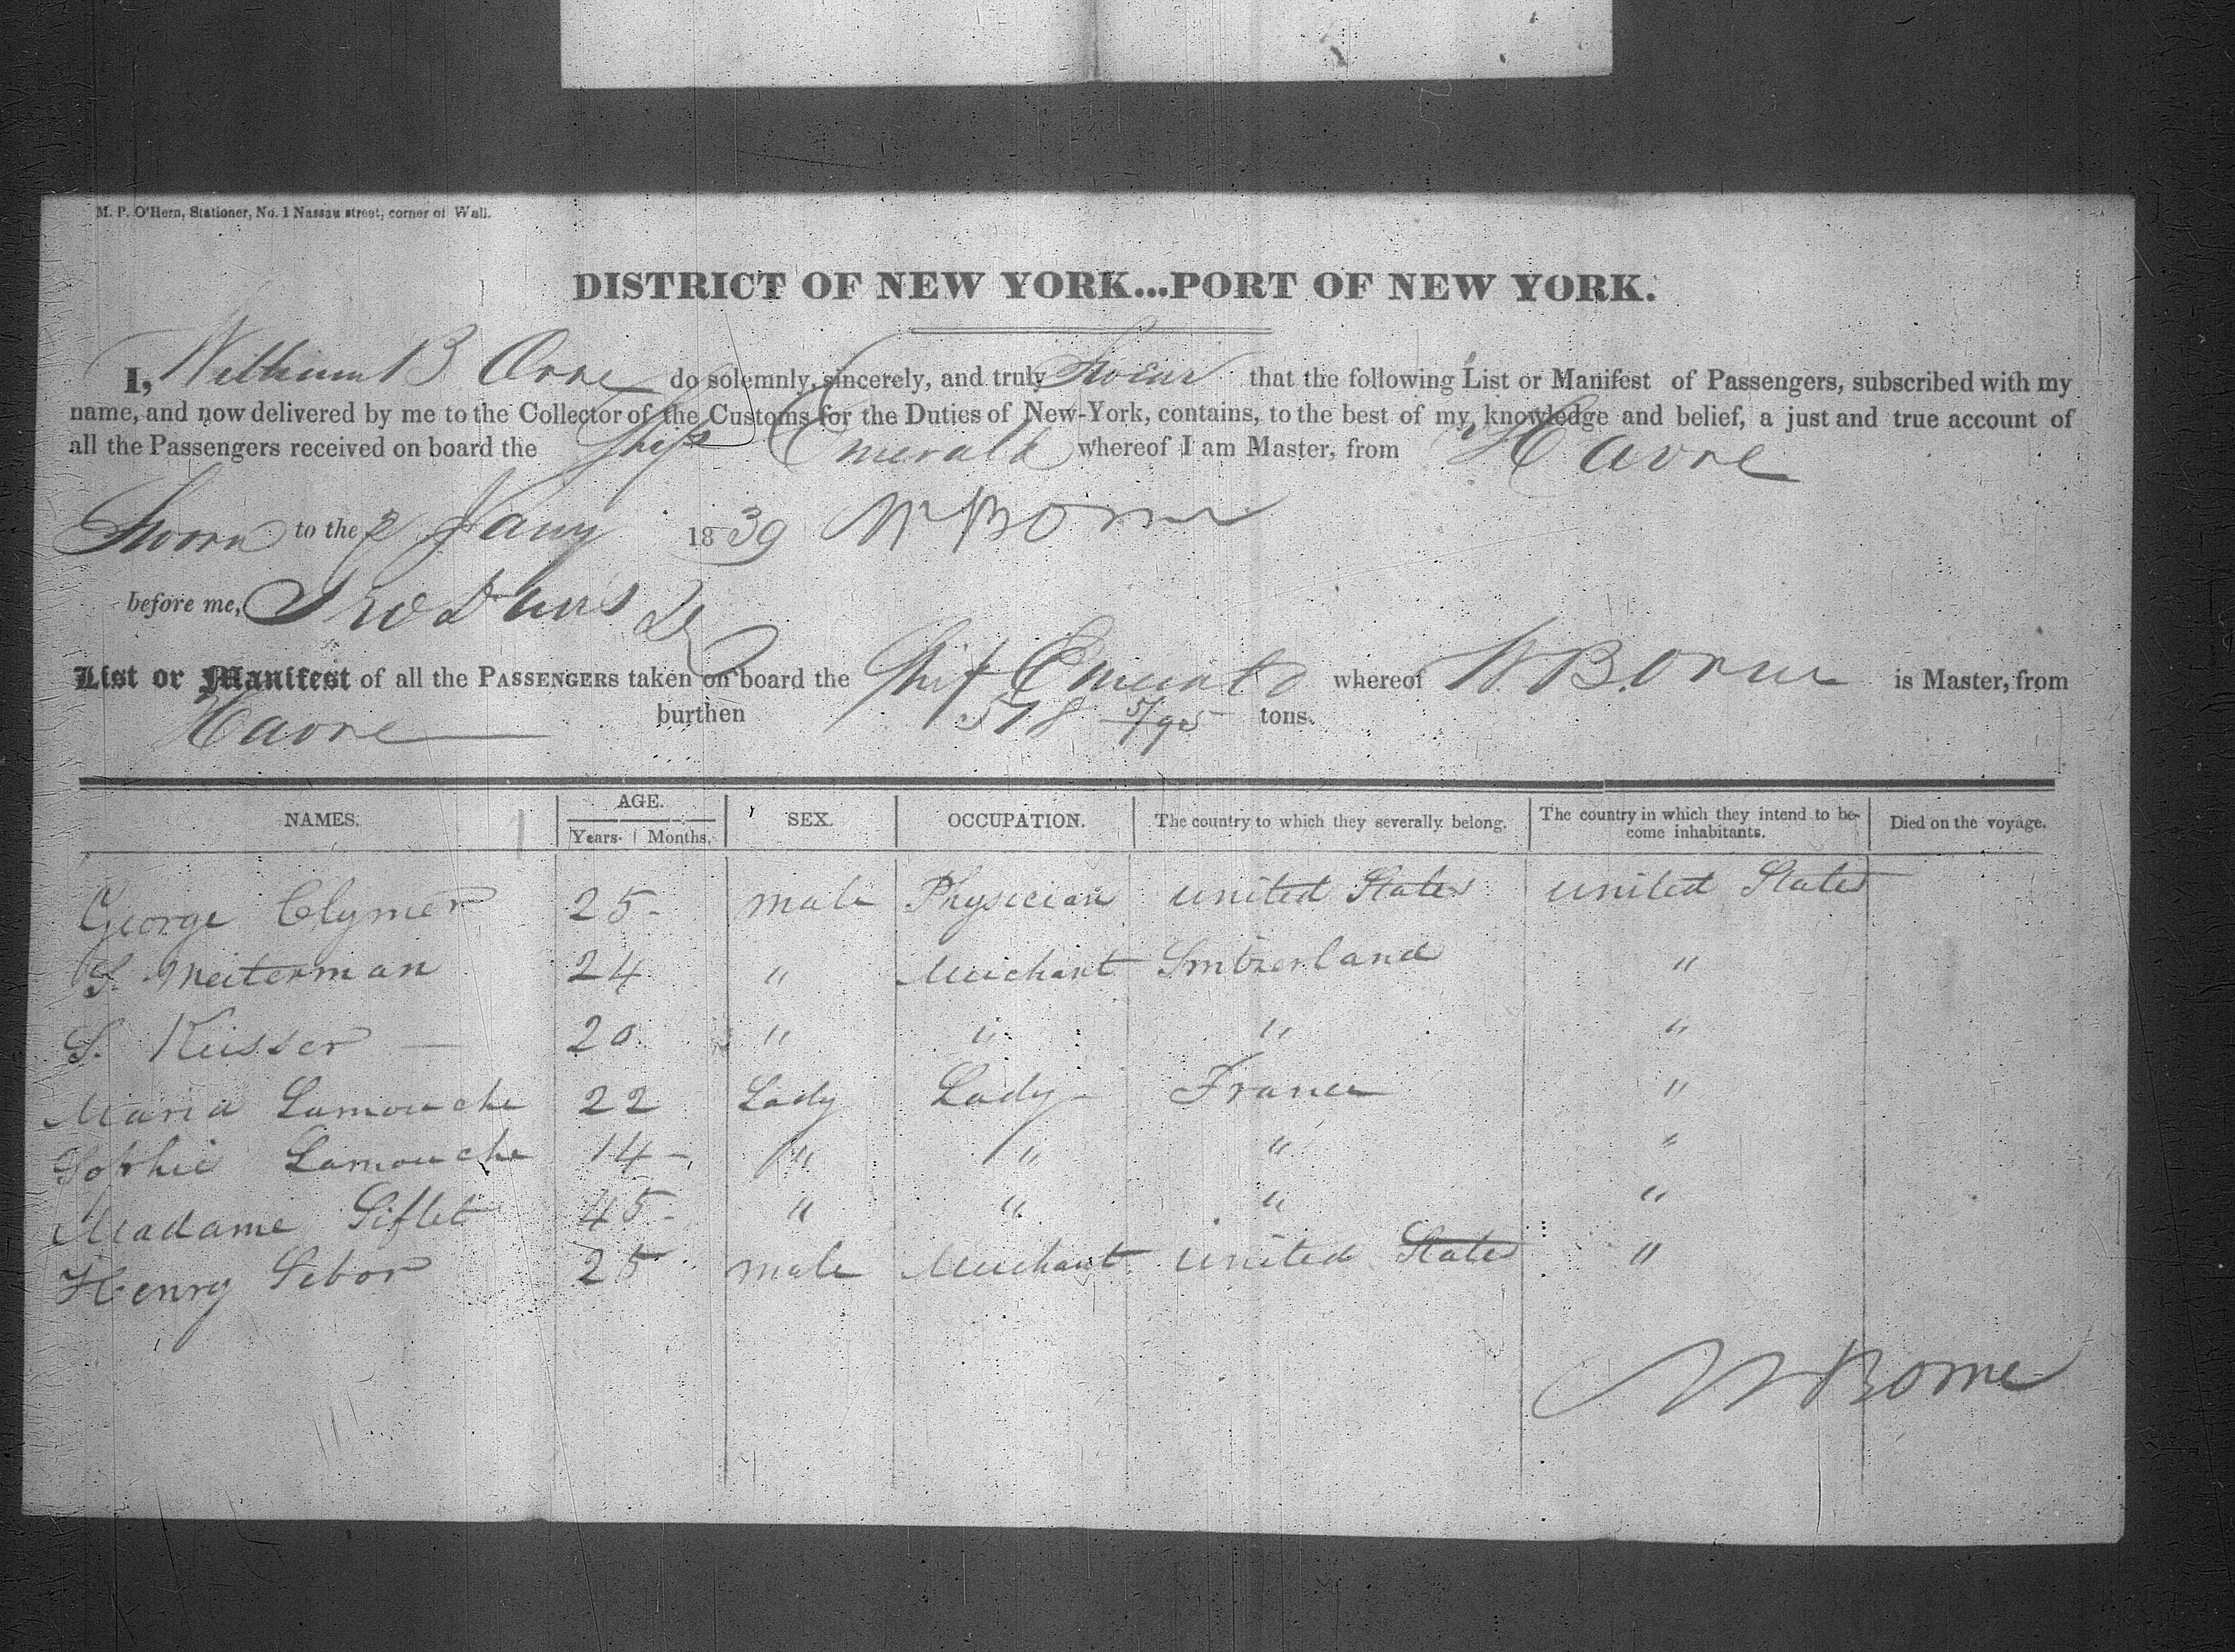 M. P. O'Hern, Stationer, No. 1 Nassau street, corner of Wall.
DISTRICT OF NEW YORK...PORT OF NEW YORK.
I, William B Orne do solemnly, sincerely, and truly Swear that the following List or Manifest of Passengers, subscribed with my
name, and now delivered by me to the Collector of the Customs for the Duties of New-York, contains, to the best of my knowledge and belief, a just and true account of
all the Passengers received on board the Ship Emerald whereof I am Master, from Havre
Sworn to the 2 Jany 1839 W B Orne
before me,
List or Manifest of all the PASSENGERS taken on board the Ship Emerald whereof W. B. Orne is Master, from
Havre burthen 518 5/95 tons.
NAMES. AGE. Years. Months. SEX. OCCUPATION. The country to which they severally belong. The country in which they intend to be-come inhabitants. Died on the voyage.
George Clymer 25 - male Physician united States united States
S. Meiterman 24 " Merchant Switzerland "
S. Keisser — 20 " " " "
Maria Lamouche 22 Lady Lady - France "
Sophie Lamouche 14 - " " " "
Madame Siflet 45 - " " " "
Henry Sebor 25 male Merchant united States "
W B Orne